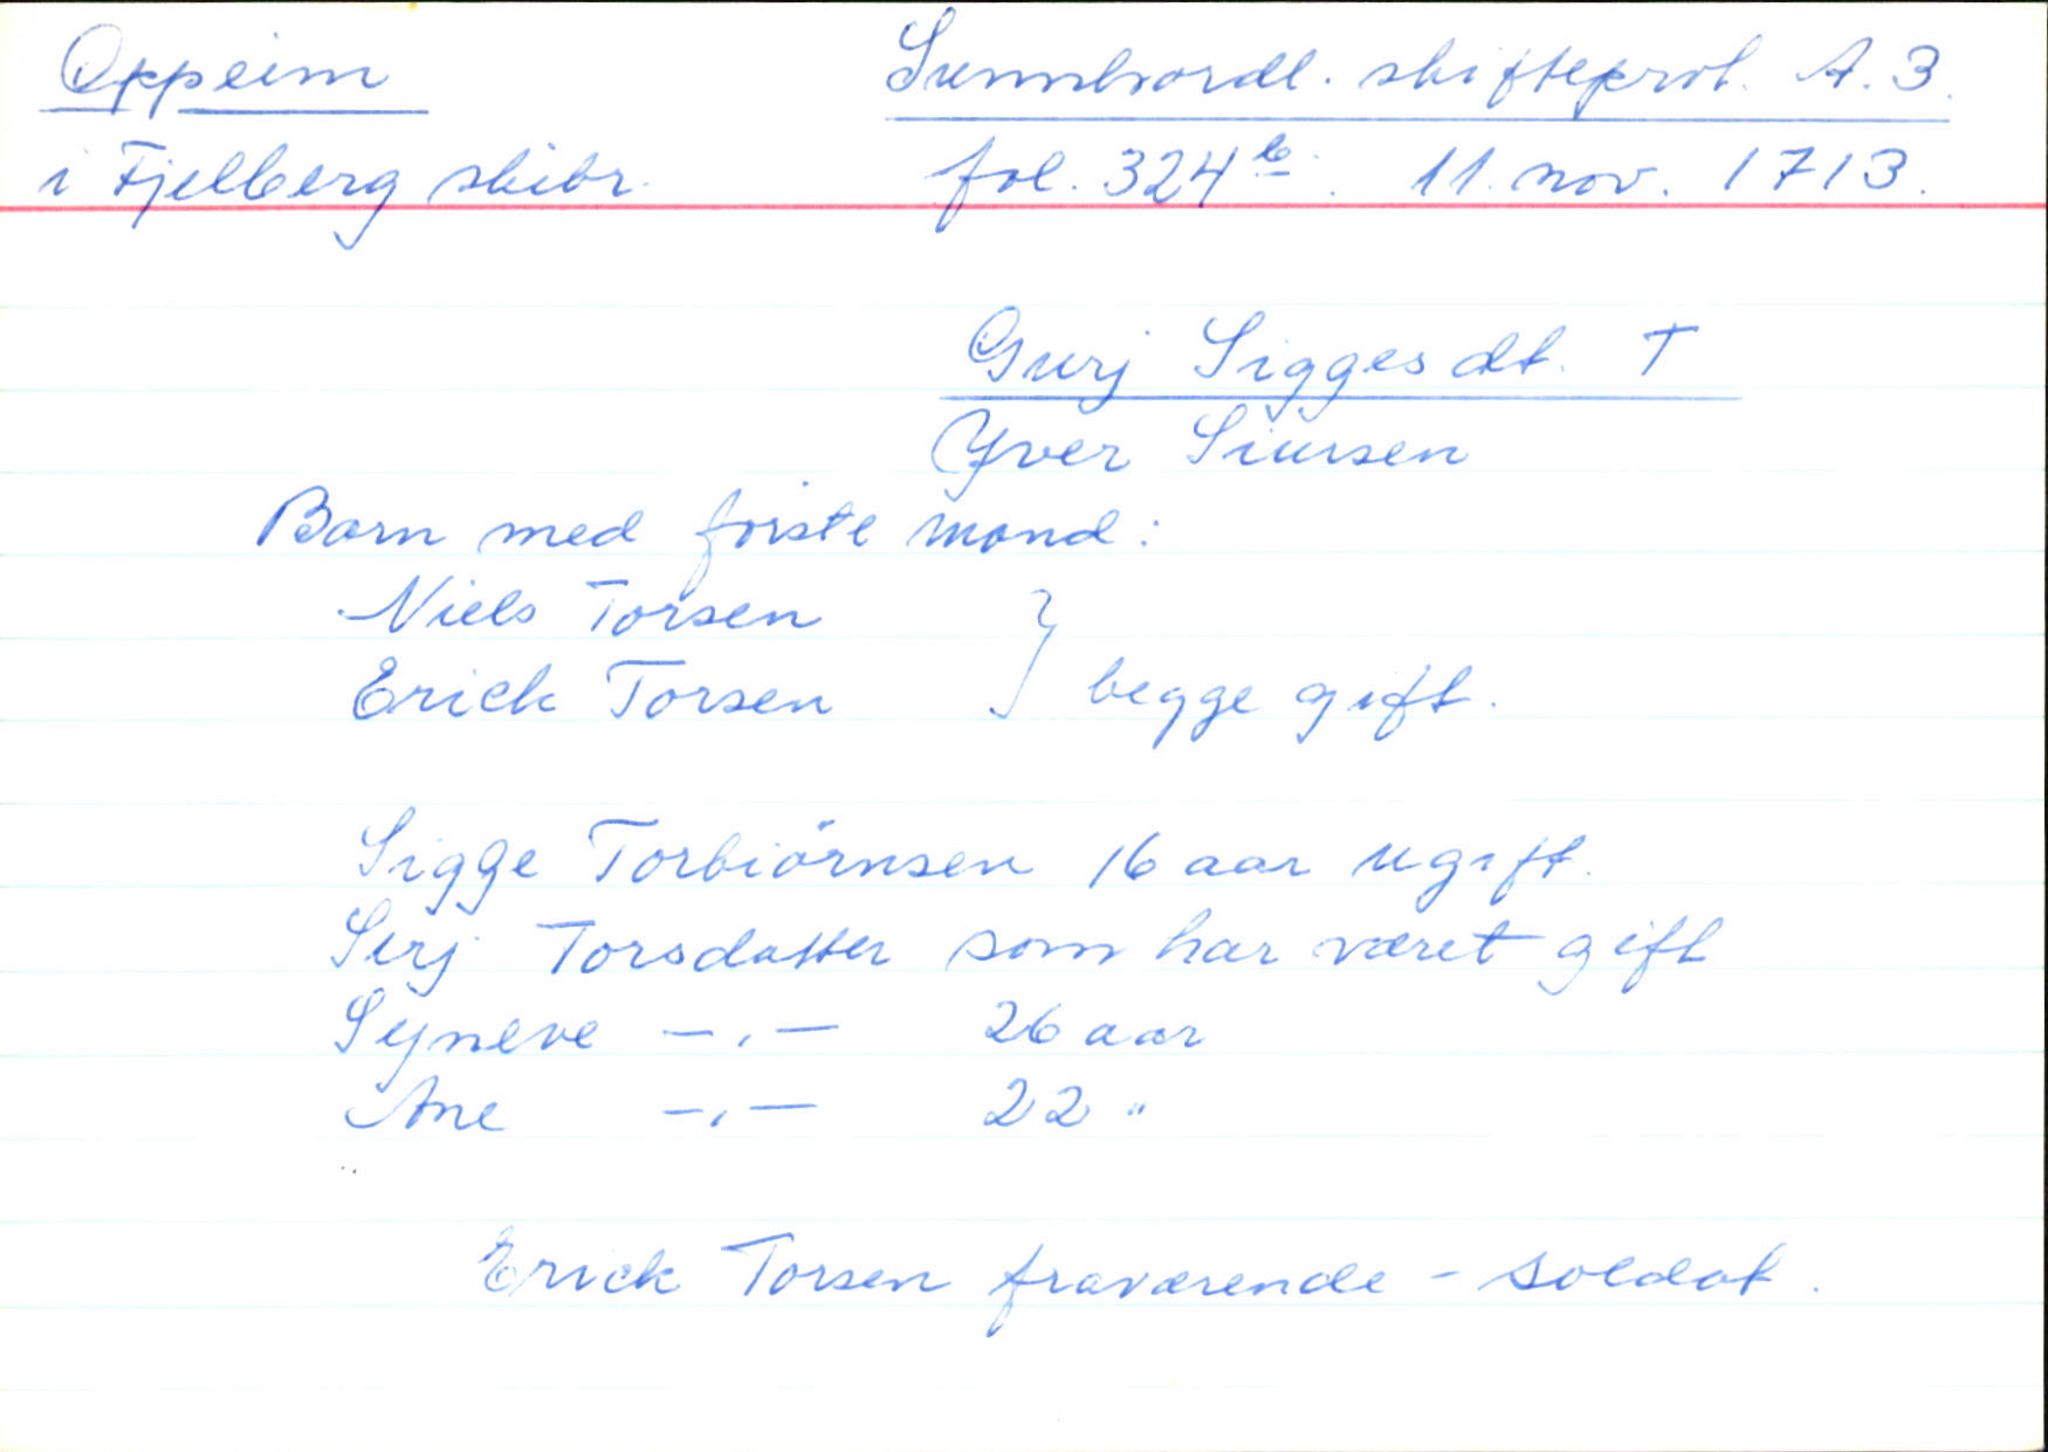 Oppeim
Sunnhordl. skifteprot. A. 3.
i Fjelberg skibr.
fol. 324 b. 11. nov. 1713.
Gurj Siggesdt. †
Yver Siursen
Barn med förste mand:
Niels Torsen
Erick Torsen } begge gift.
Sigge Torbiörnsen 16 aar ugift.
Sirj Torsdatter som har været gift
Syneve —,— 26 aar
Ane —,— 22 "
Erick Torsen fraværende - soldat.